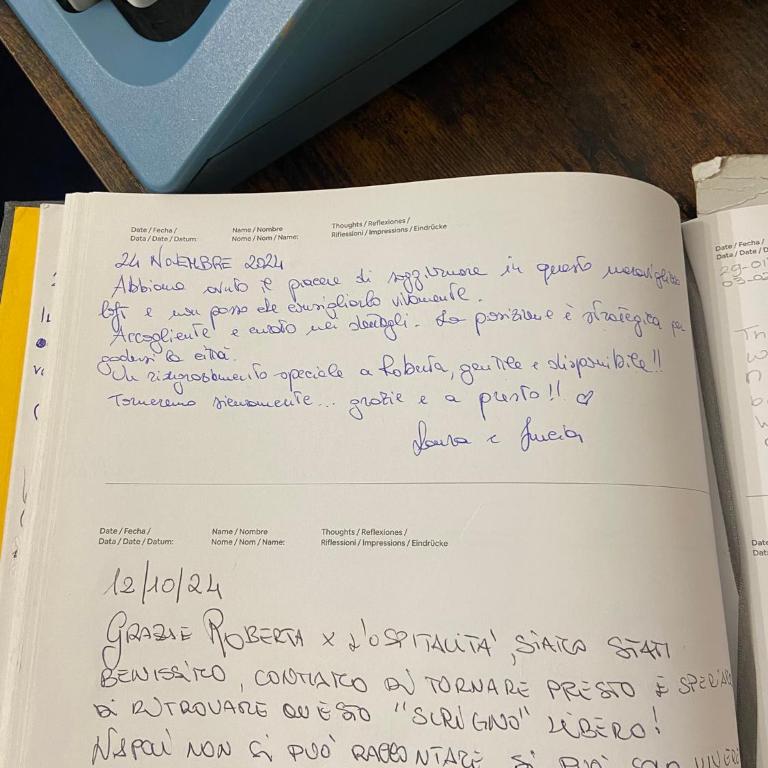 Date / Fecha / Name / Nombre Thoughts / Reflexiones /
Data / Date / Datum: Nome / Nom / Name: Riflessioni / Impressions / Eindrücke
24 NOVEMBRE 2024
Abbiamo avuto il piacere di soggiornare in questo meraviglioso
loft e non posso che consigliarlo vivamente.
Accogliente e curato nei dettagli. La posizione è strategica per
godersi la città.
Un ringraziamento speciale a Roberta, gentile e disponibile!!
Torneremo sicuramente... grazie e a presto!! ♡
Laura e Lucia
Date / Fecha / Name / Nombre Thoughts / Reflexiones /
Data / Date / Datum: Nome / Nom / Name: Riflessioni / Impressions / Eindrücke
12/10/24
GRAZIE ROBERTA X L'OSPITALITA', SIAMO STATI
BENISSIMO, CONTIAMO DI TORNARE PRESTO E
DI RITROVARE QUESTO "SCRIGNO" LIBERO!
NAPOLI NON SI PUÒ RACCONTARE SI PUÒ SOLO VIVERE
Date / Fecha /
Data / Date / D
29-01